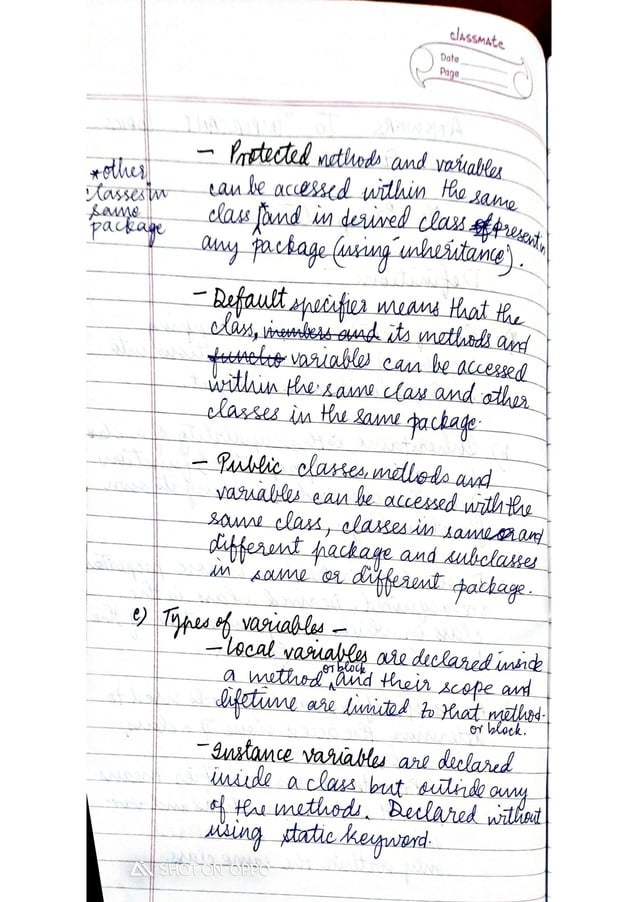 classmate
Date
Page
- Protected methods and variables
can be accessed within the same
class ^ and in derived class of present in
any package (using inheritance).
*other
classes in
same
package
- Default specifier means that the
class, members and its methods and
functio variables can be accessed
within the same class and other
classes in the same package.
- Public classes, methods and
variables can be accessed with the
same class, classes in same or and
different package and subclasses
in same or different package.
e) Types of variables -
- Local variables are declared inside
a method ^ or block and their scope and
lifetime are limited to that method.
or block.
- Instance variables are declared
inside a class but outside any
of the methods. Declared without
using static keyword.
SHOT ON OPPO